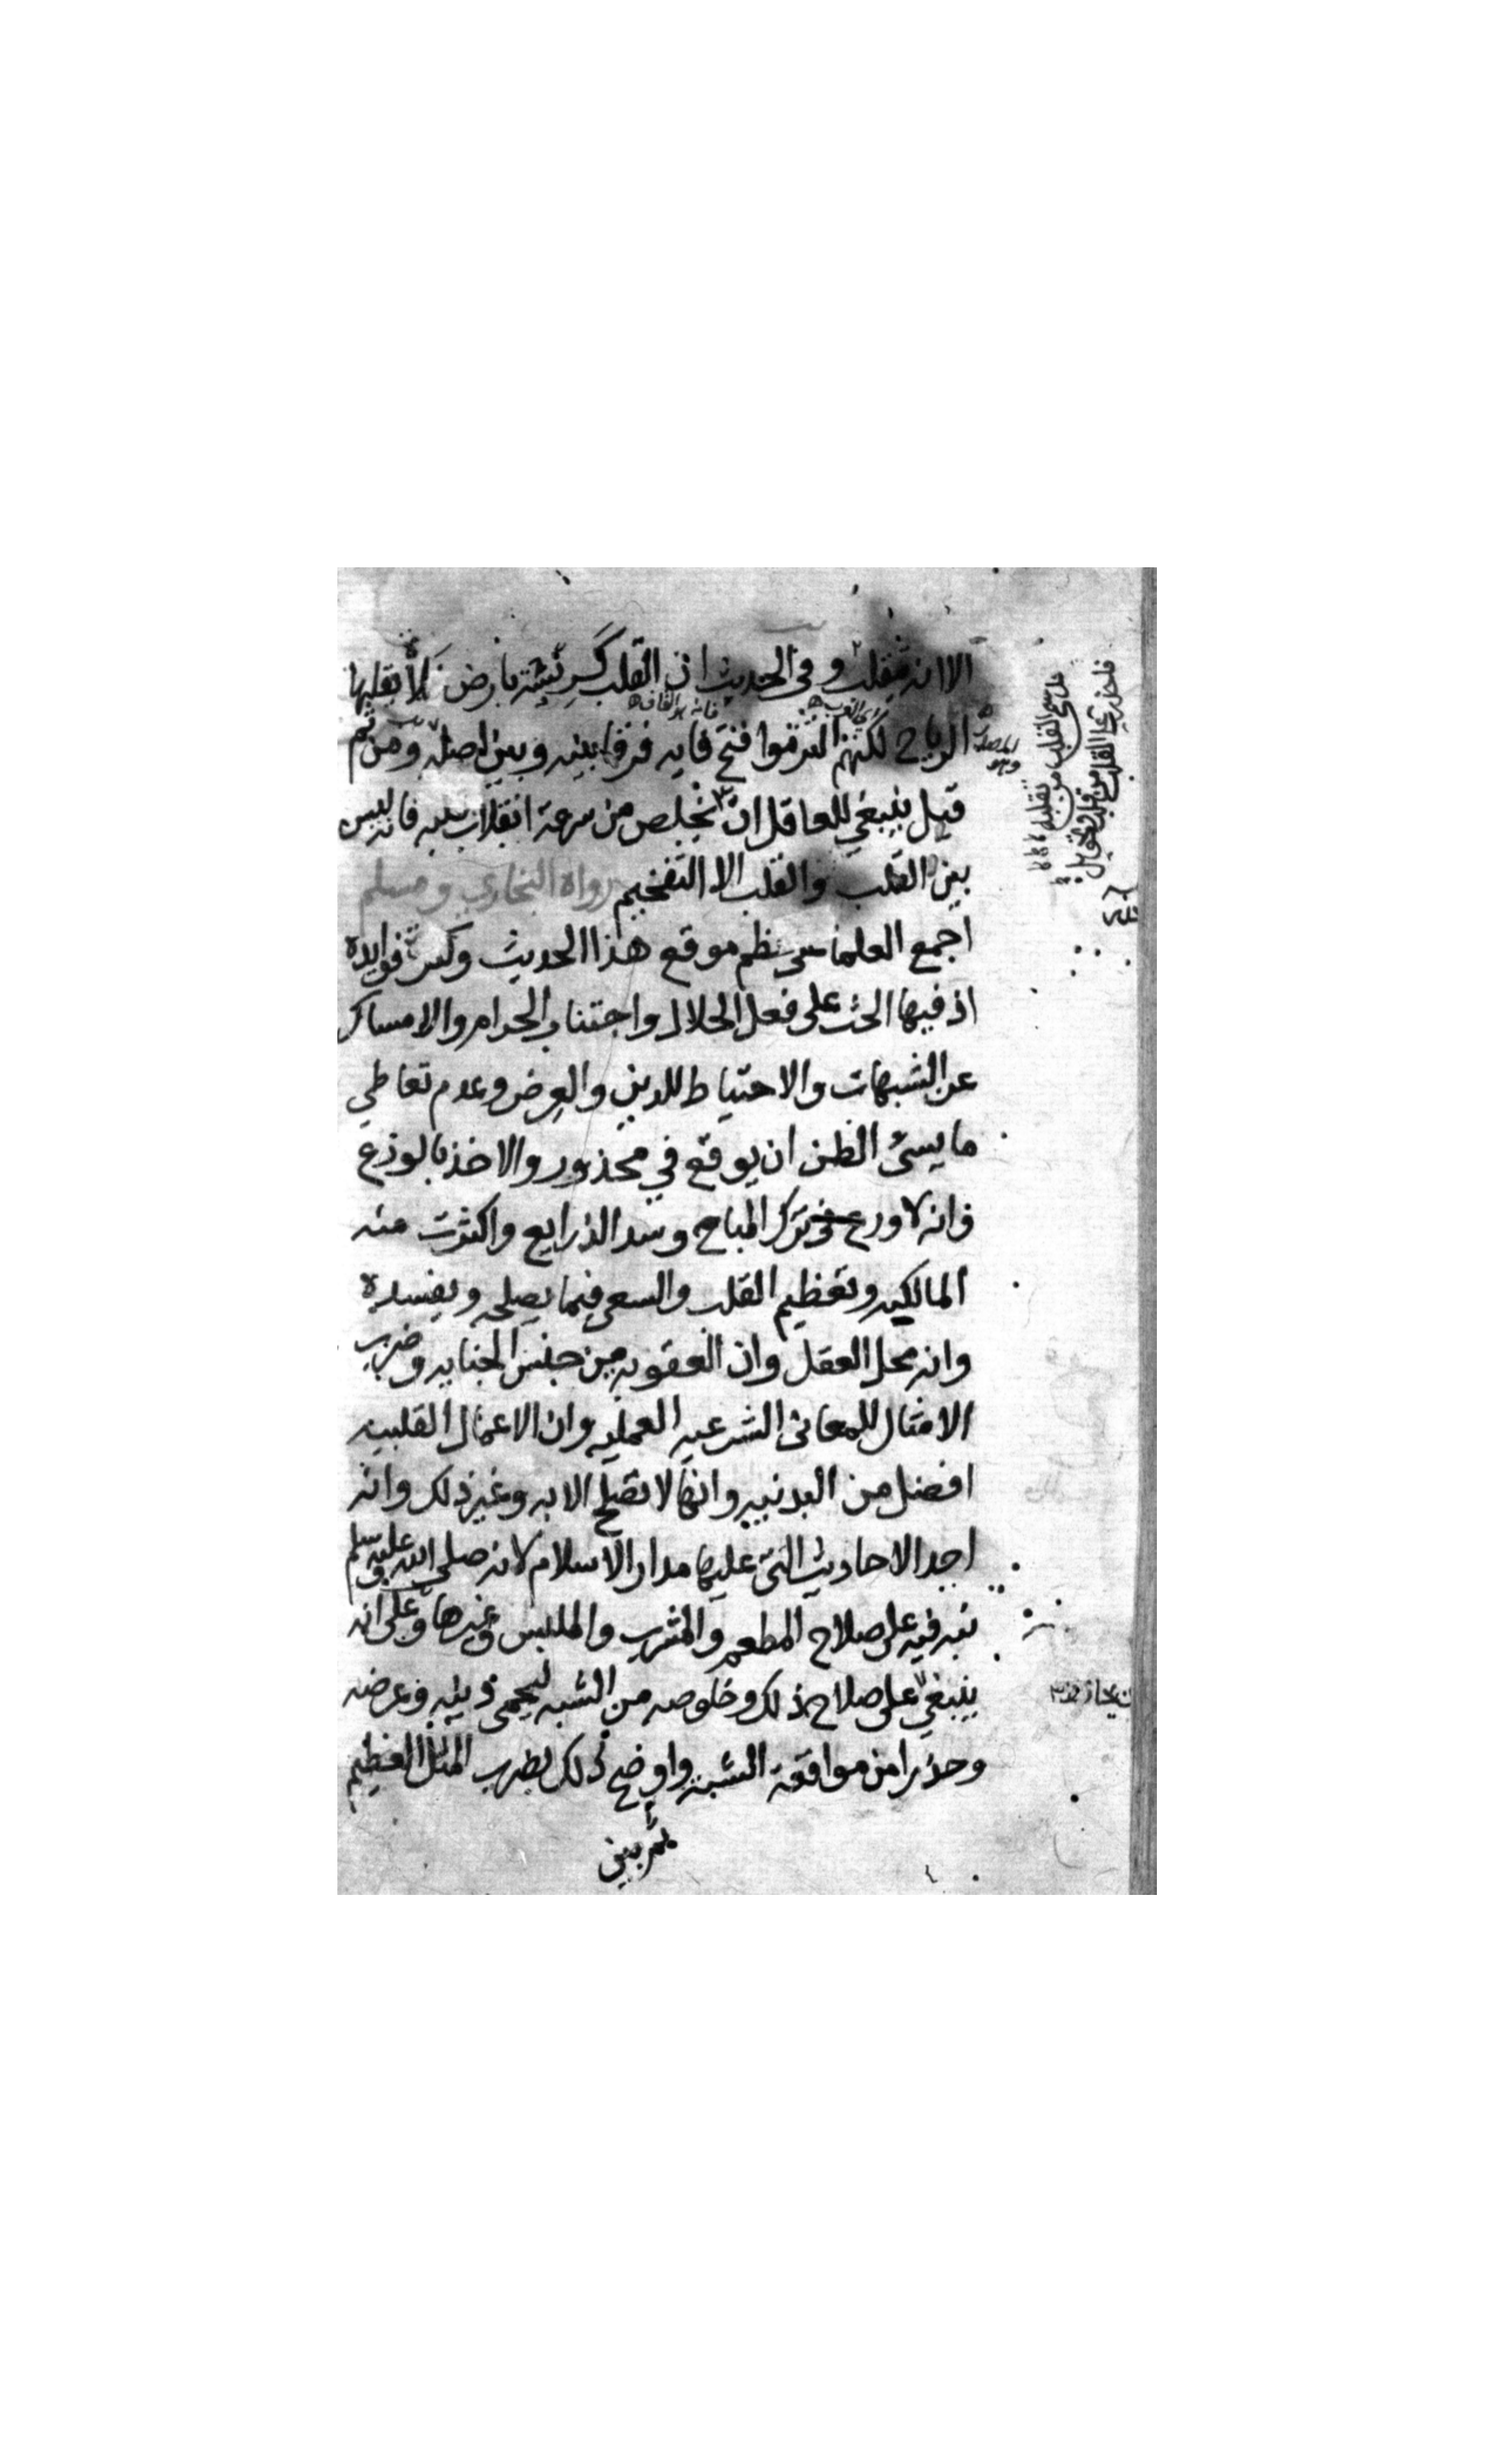 الا انه متقلب وفى الحديث ان القلب كريشة بارض فلاة يقلبها
الرياح لكنهم التزموا فتح قافه فرقا بينه وبين اصله ومن ثم
قيل ينبغي للعاقل ان من سرعة انقلاب قلبه فانه ليس
بين القلب والقلب الا التفخيم رواة البخاري ومسلم
اجمع العلما على عظم موقع هذا الحديث وكثرة فوايدة
اذ فيها الحث على فعل الحلال واجتناب الحرام والامساك
عن الشبهات والاحتياط للدين والعرض وعدم تعاطي
ما يسئ الظن ان يوقع في محذور والاخذ بالورع
فانه لا ورع في ترك المباح وسد الذرايع واكثرت منه
المالكيه وتعظيم القلب والسعى فيما يصلحه ويفسدة
وانه محل العقل وان العقوبه من جنس الجنايه وضرب
الامثال للمعانى الشرعيه العمليه وان الاعمال القلبيه
افضل من البدنيه وانها لا تصلح الا به وغير ذلك وانه
احد الاحاديث التى عليها مدار الاسلام لانه صلى الله عليه وسلم
نبه فيه على صلاح المطعم والمشرب والملبس وغيرها وعلى انه
ينبغي على صلاح ذلك وخلوصه من الشبه ليحمى دينه وعرضه
وحذرا من مواقعة الشبه واوضح ذلك بضرب المثل العظيم
ثم بين
ما سمي القلب الا من تقلبه
فاحذر على القلب من قلب وتحويل